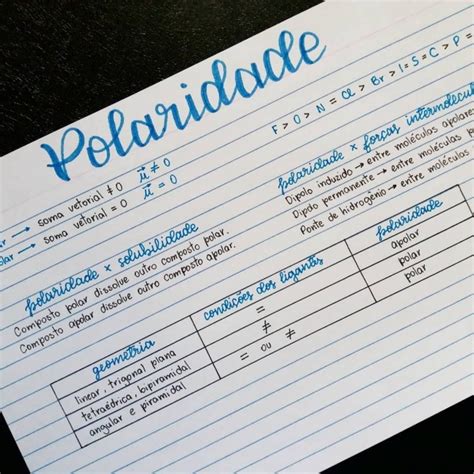 Polaridade
F > O > N = Cl > Br > I = S = C > P =
ar → soma vetorial ≠ 0 μ⃗ ≠ 0
olar → soma vetorial = 0 μ⃗ = 0
polaridade x forças intermolecul
Dipolo induzido → entre moléculas apolares
Dipolo permanente → entre moléculas
Ponte de hidrogênio → entre moléculas
polaridade x solubilidade
Composto polar dissolve outro composto polar.
Composto apolar dissolve outro composto apolar.
geometria condições dos ligantes polaridade
linear, trigonal plana = apolar
tetraédrica, bipiramidal ≠ polar
angular e piramidal = ou ≠ polar